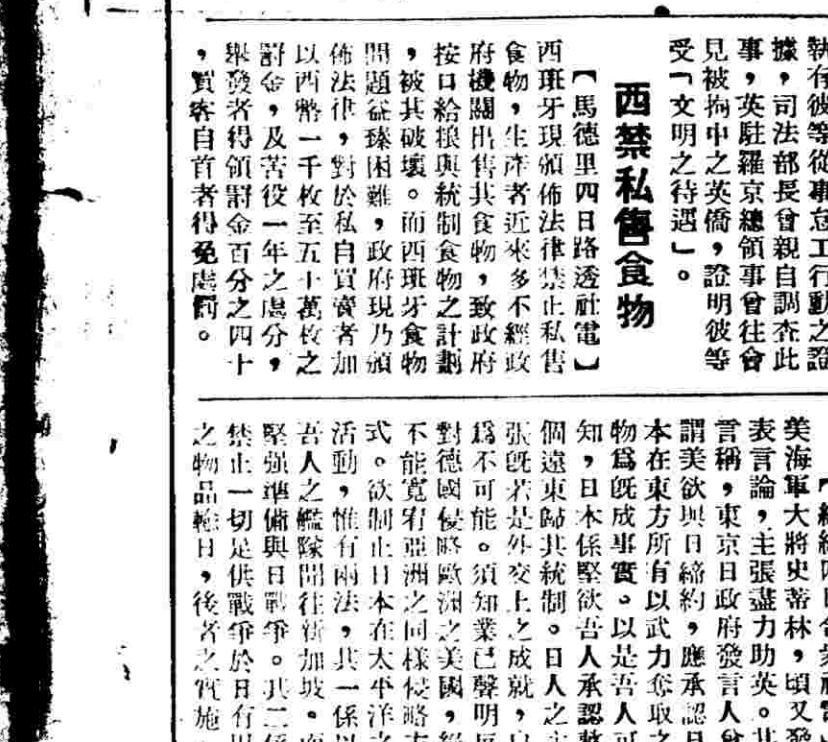 執有彼等從事怠工行動之證
據，司法部長曾親自調查此
事，英駐羅京總領事曾往會
見被拘中之英僑，證明彼等
受「文明之待遇」。
西禁私售食物
【馬德里四日路透社電】
西班牙現頒佈法律禁止私售
食物，生產者近來多不經政
府機關出售其食物，致政府
按口給粮與統制食物之計劃
，被其破壞。而西班牙食物
問題益臻困難，政府現乃頒
佈法律，對於私自買賣者加
以西幣一千枚至五十萬枚之
罰金，及苦役一年之處分，
舉發者得領罰金百分之四十
，買客自首者得免處罰。
美海軍大將史蒂林，頃又發
表言論，主張盡力助英。其
言稱，東京日政府發言人曾
謂美欲與日締約，應承認日
本在東方所有以武力奪取之
物爲旣成事實。以是吾人可
知，日本係堅欲吾人承認整
個遠東歸其統制。日人之主
張旣若是外交上之成就，
爲不可能。須知業已聲明反
對德國侵略歐洲之美國，
不能寬宥亞洲之同樣侵略方
式。欲制止日本在太平洋之
活動，惟有兩法，其一係以
吾人之艦隊開往新加坡。而
堅强準備與日戰爭。其二係
禁止一切足供戰爭於日有
之物品輸日，後者之實施